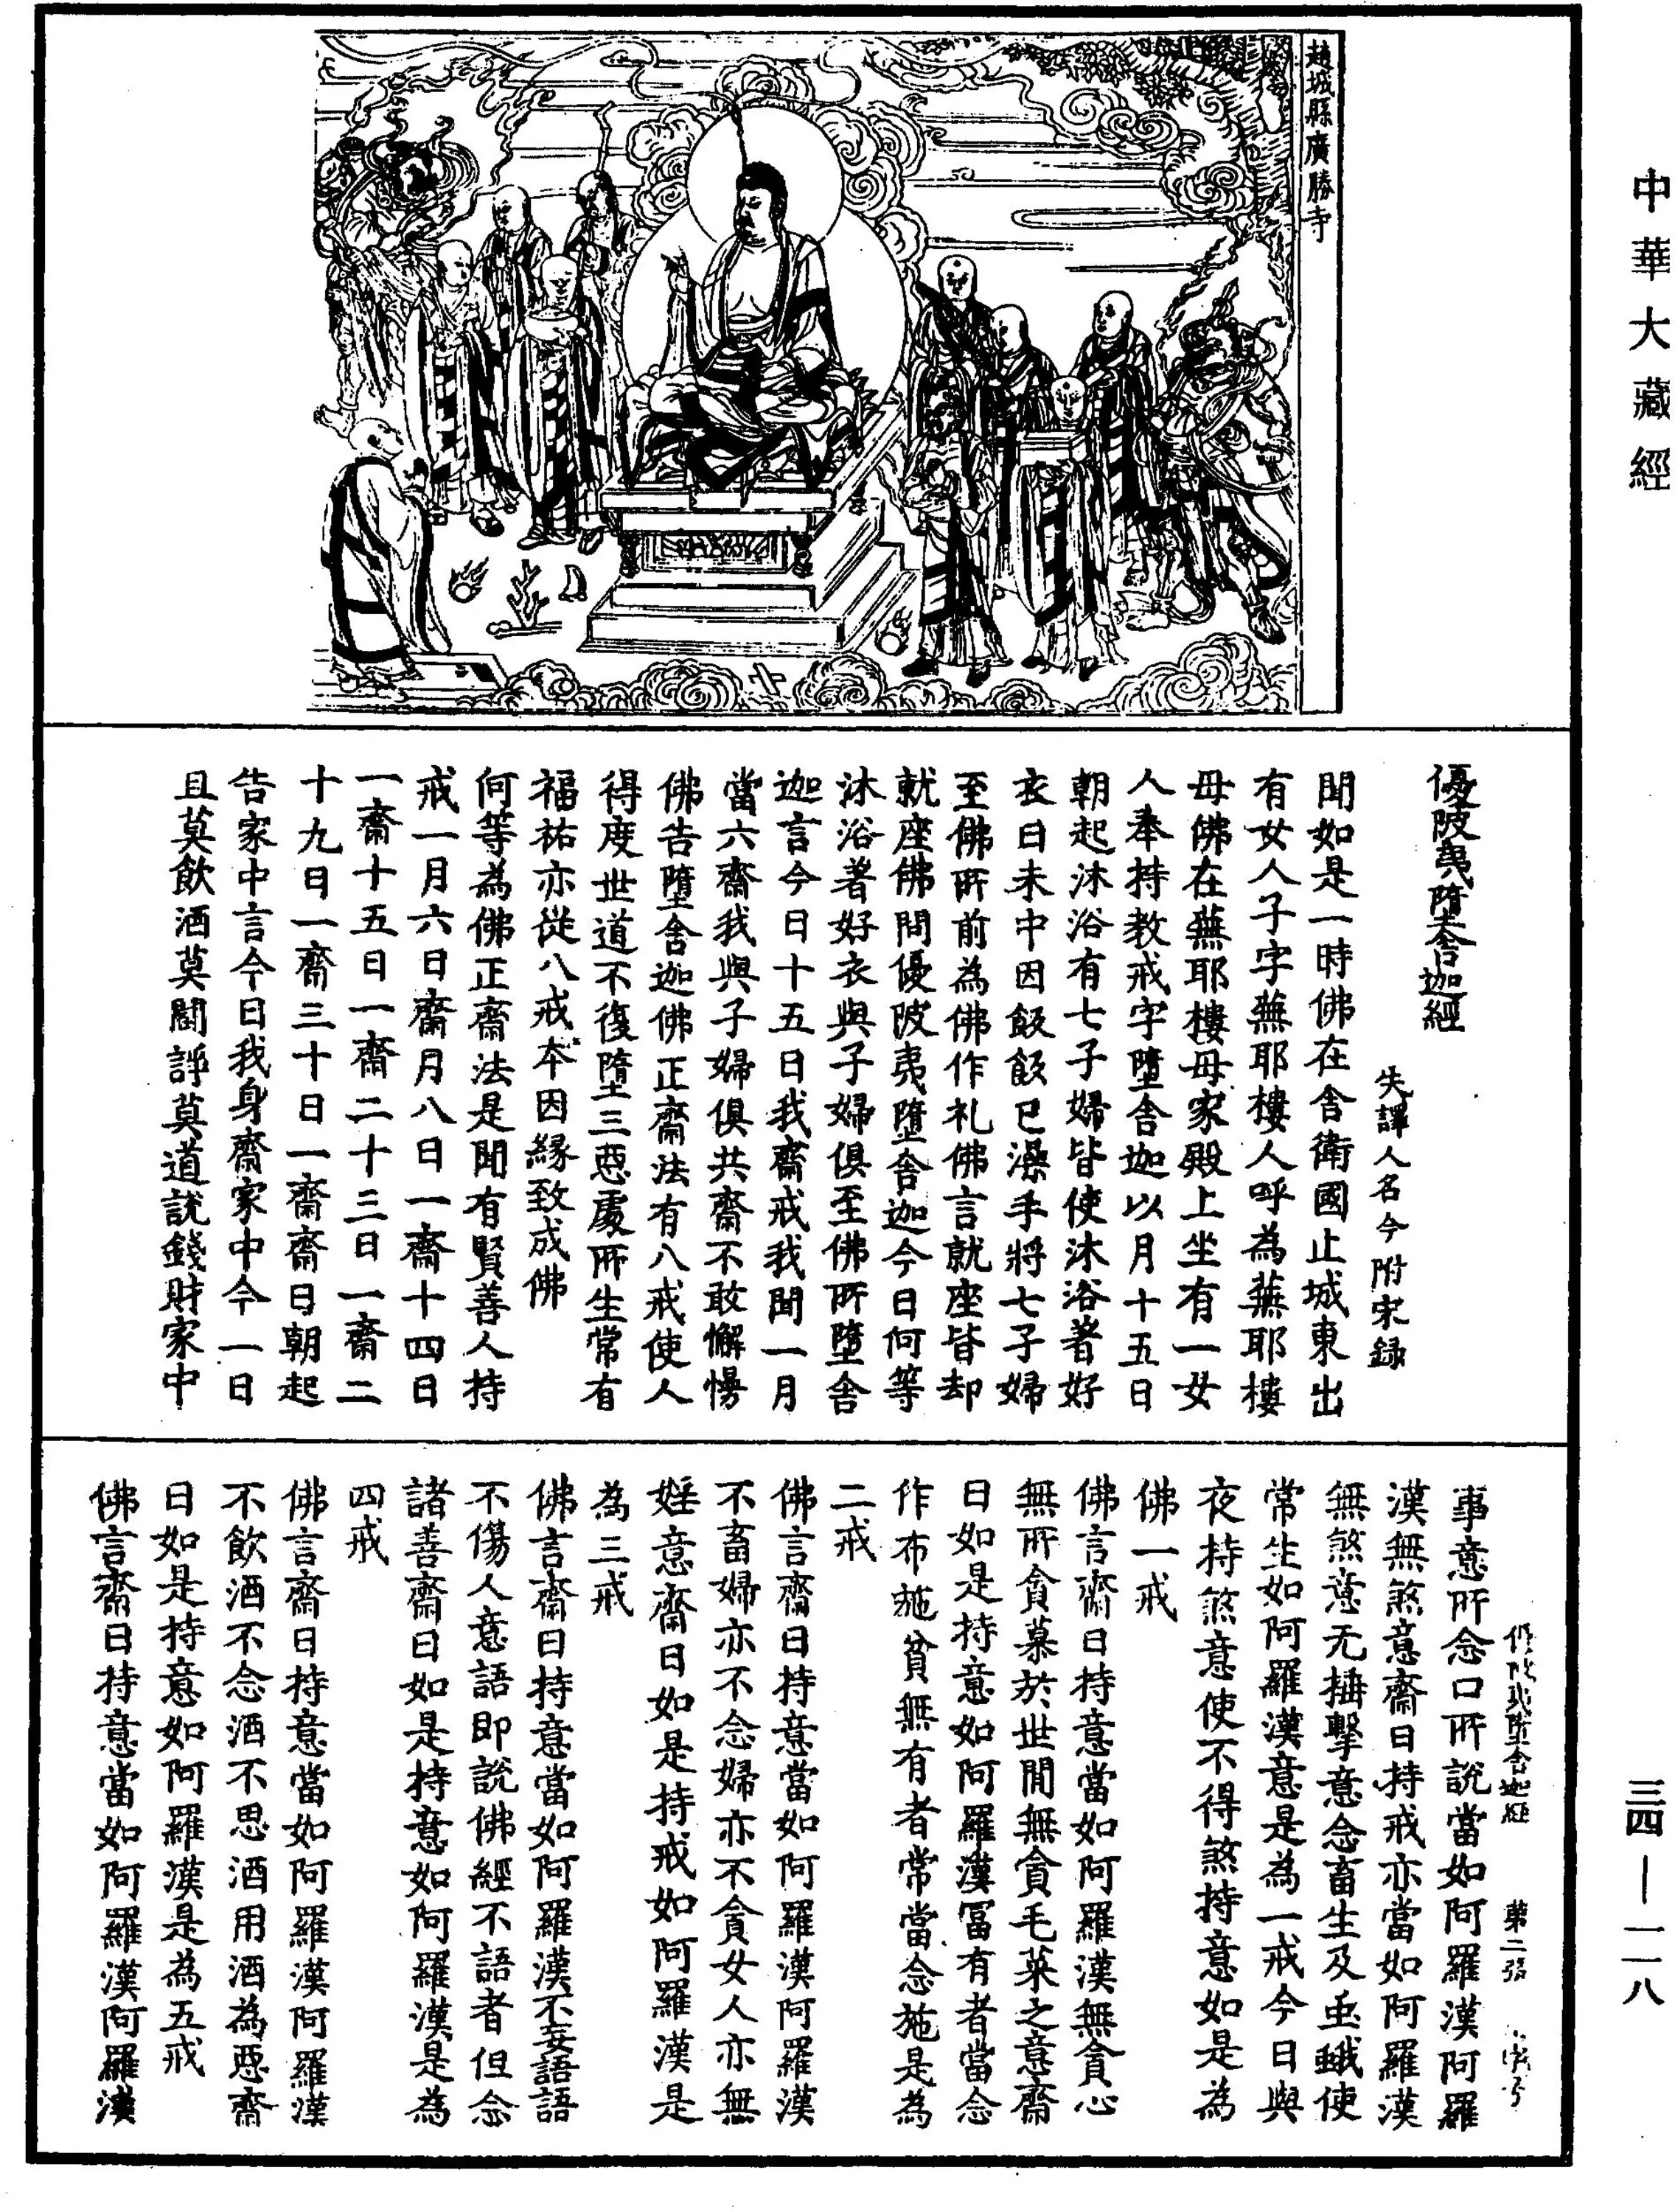 中華大藏經
三四—一一八
趙城縣廣勝寺
優陂夷墮舍迦經
失譯人名今附宋録
聞如是一時佛在舍衛國止城東出
有女人子字蕪耶樓人呼為蕪耶樓
母佛在蕪耶樓母家殿上坐有一女
人奉持教戒字墮舍迦以月十五日
朝起沐浴有七子婦皆使沐浴著好
衣日未中因飯飯已澡手將七子婦
至佛所前為佛作礼佛言就座皆却
就座佛問優陂夷墮舍迦今日何等
沐浴著好衣與子婦俱至佛所墮舍
迦言今日十五日我齋戒我聞一月
當六齋我與子婦俱共齋不敢懈慢
佛告墮舍迦佛正齋法有八戒使人
得度世道不復墮三惡處所生常有
福祐亦從八戒本因緣致成佛
何等為佛正齋法是聞有賢善人持
戒一月六日齋月八日一齋十四日
一齋十五日一齋二十三日一齋二
十九日一齋三十日一齋齋日朝起
告家中言今日我身齋家中今一日
且莫飲酒莫鬪諍莫道說錢財家中
墮舍迦經 第二張
事意所念口所說當如阿羅漢阿羅
漢無煞意齋日持戒亦當如阿羅漢
無煞意无捶擊意念畜生及虫蛾使
常生如阿羅漢意是為一戒今日與
夜持煞意使不得煞持意如是為
佛一戒
佛言齋日持意當如阿羅漢無貪心
無所貪慕於世間無貪毛菜之意齋
日如是持意如阿羅漢冨有者當念
作布施貧無有者常當念施是為
二戒
佛言齋日持意當如阿羅漢阿羅漢
不畜婦亦不念婦亦不貪女人亦無
婬意齋日如是持戒如阿羅漢是
為三戒
佛言齋日持意當如阿羅漢不妄語語
不傷人意語即說佛經不語者但念
諸善齋日如是持意如阿羅漢是為
四戒
佛言齋日持意當如阿羅漢阿羅漢
不飲酒不念酒不思酒用酒為惡齋
日如是持意如阿羅漢是為五戒
佛言齋日持意當如阿羅漢阿羅漢